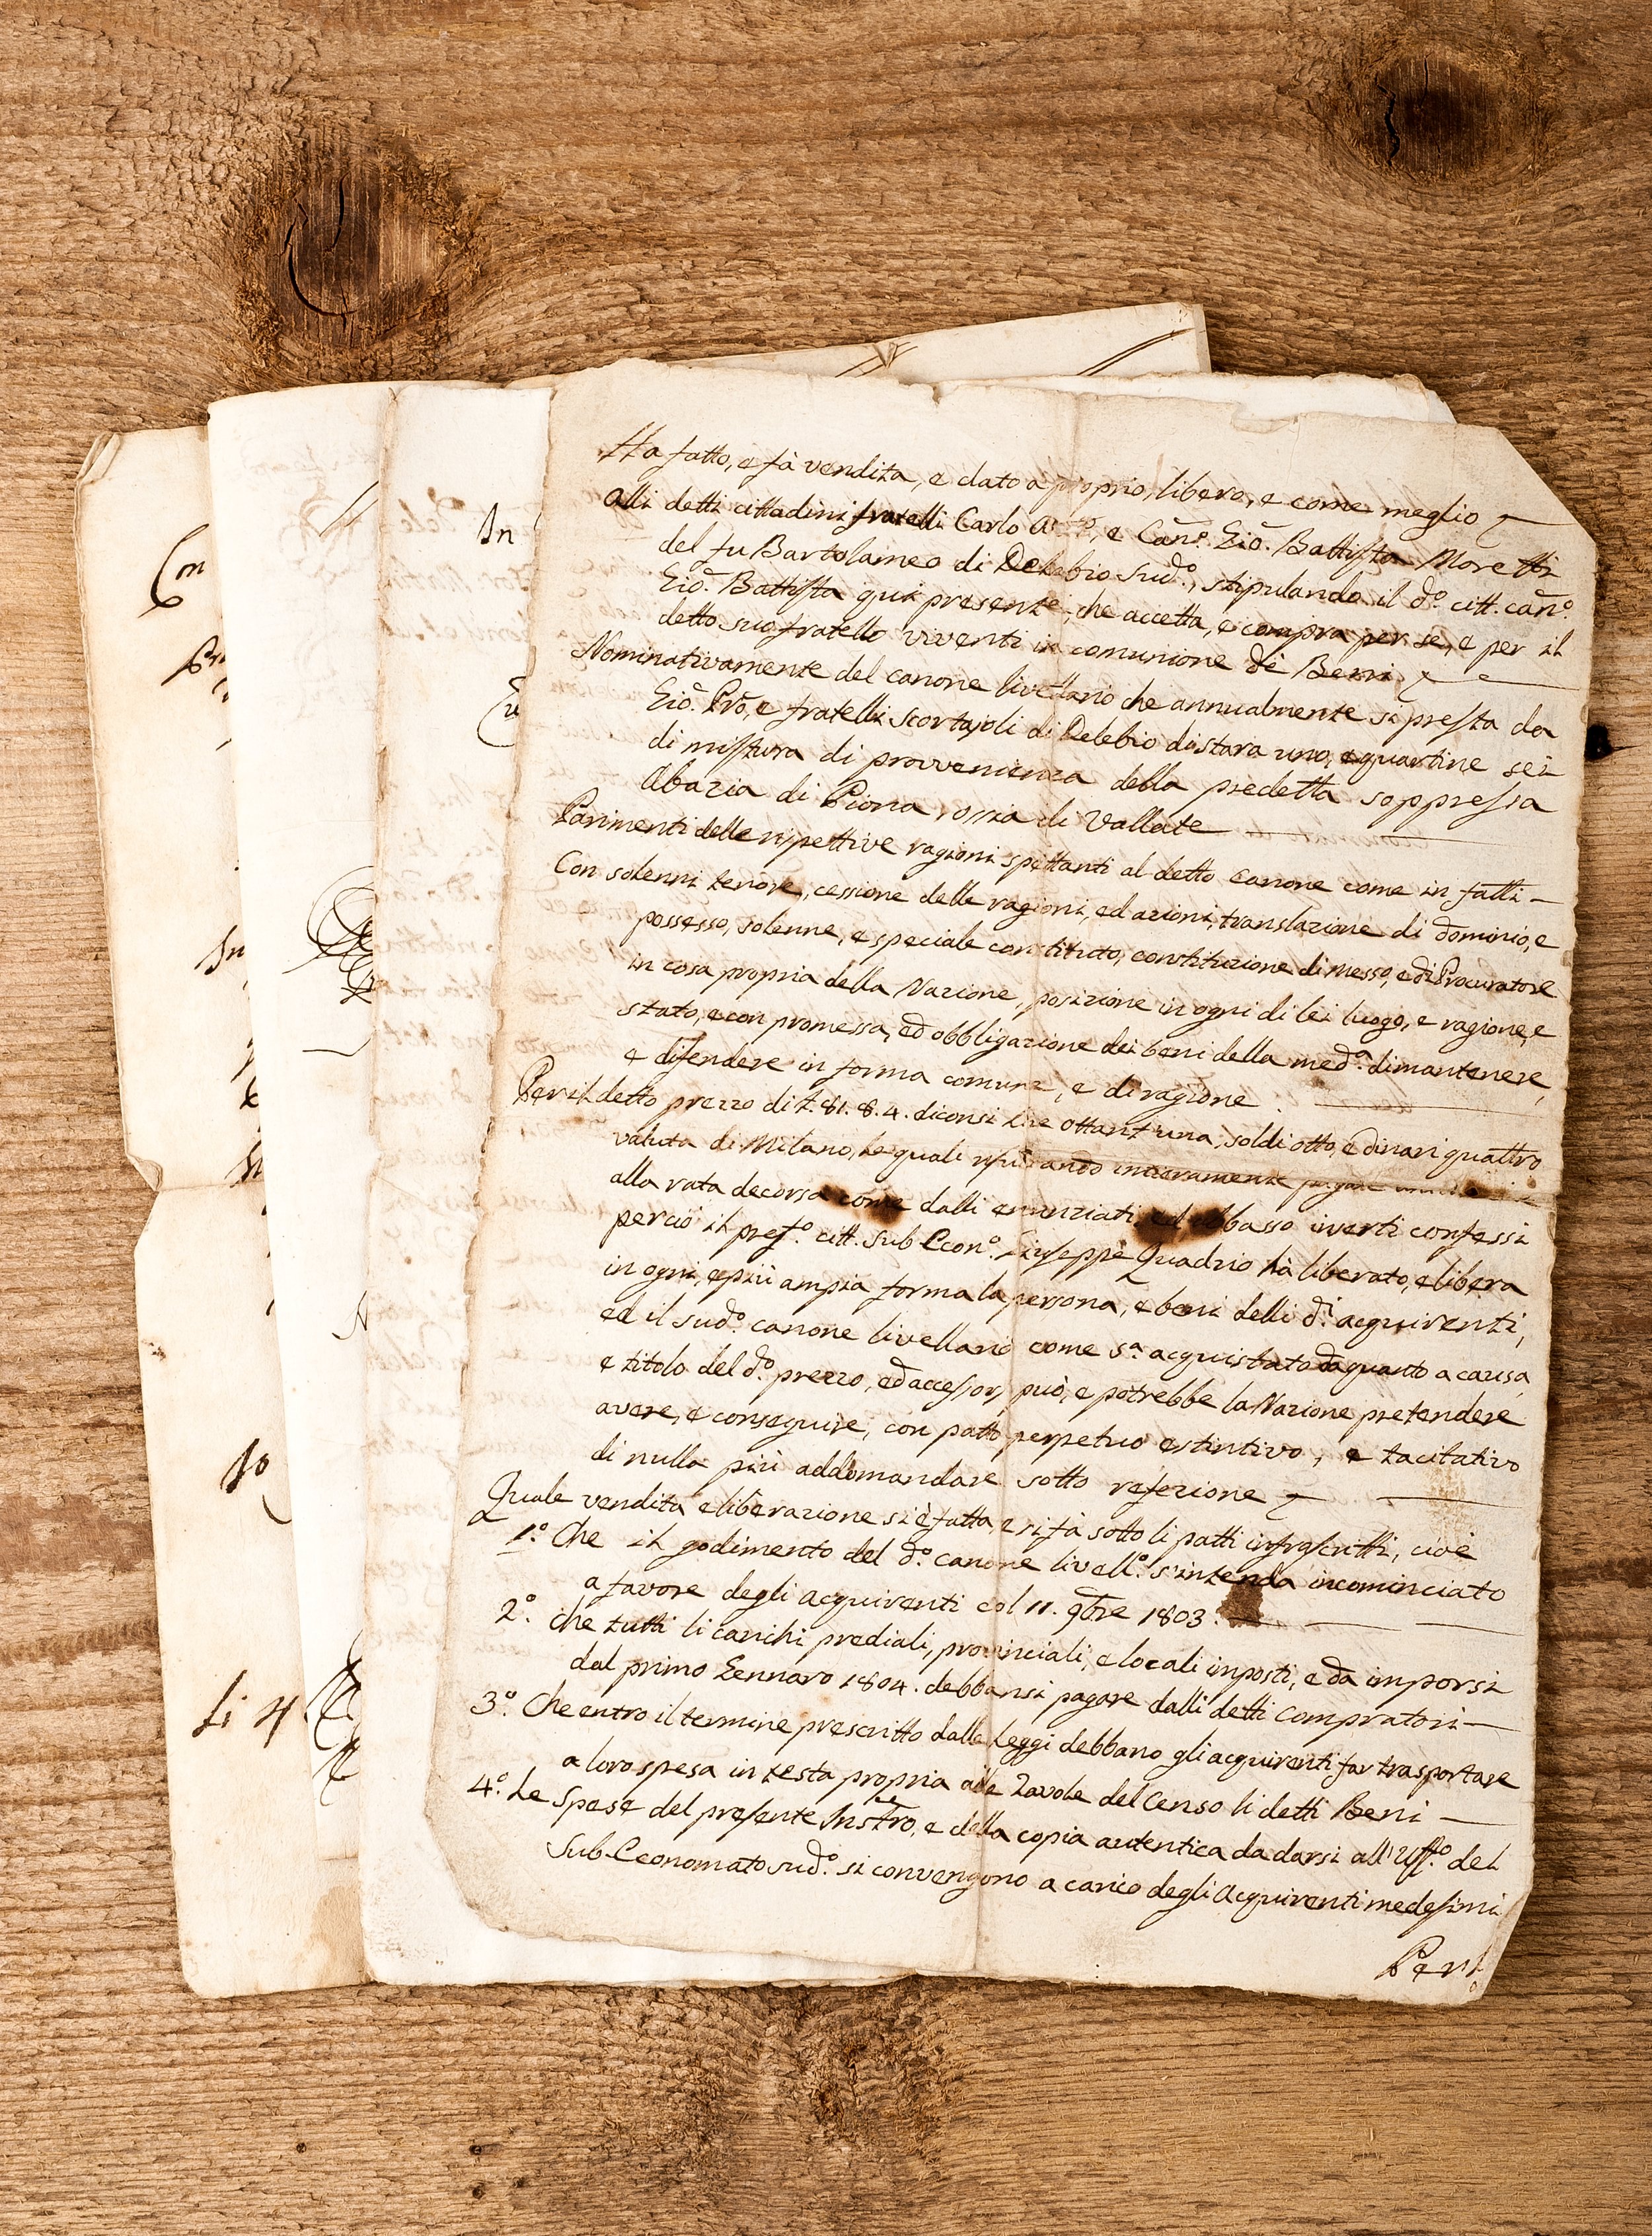 Con
In
In
So
Li 4
Ha fatto, e fà vendita, e dato a proprio, libero, e come meglio
alli detti cittadini fratelli Carlo, e Can.º Gio. Battista Moretti
del fu Bartolameo di Delebio sud.º, stipulando il d.º citt. can.º
Gio. Battista qui presente, che accetta, e compra per se, e per il
detto suo fratello viventi in comunione de Beni
Nominativamente del canone livellario che annualmente si presta da
Gio. Prõ, e fratelli Scortajoli di Delebio di stara uno, e quartine sei
di mistura di provvenienza della predetta soppressa
Abazia di Piona ossia di Vallate
Parimenti delle rispettive ragioni spettanti al detto canone come in fatti
Con solenni tenore, cessione delle ragioni, ed azioni, translazione di dominio, e
possesso, solenne, e speciale constituto, constituzione di messo, e di Procuratore
in cosa propria della Nazione, posizione in ogni di lei luogo, e ragione, e
stato, e con promessa, ed obbligazione dei beni della med.ª di mantenere,
e difendere in forma comune, e di ragione.
Per il detto prezzo di £. 81. 8. 4. diconsi lire ottant'una, soldi otto, e dinari quattro
valuta di Milano, le quali interamente pagate
alla rata decorsa come dalli enunziati, ed abbasso inserti confessi
perciò il pref.º citt. Sub Econ.º Giuseppe Quadrio hà liberato, e libera
in ogni, e più ampia forma la persona, e beni delli d.i acquirenti,
ed il sud.º canone livellario come s.ª acquistato da quanto a causa,
e titolo del d.º prezzo, ed accessorj può, e potrebbe la Nazione pretendere
avere, e conseguire, con patto perpetuo estintivo, e tacitativo
di nulla più addomandare sotto refezione
Quale vendita e liberazione si è fatta, e si fà sotto li patti infrascritti, cioè
1.º Che il godimento del d.º canone livell.º s'intenda incominciato
a favore degli acquirenti col 11. 9bre 1803.
2.º che tutti li carichi prediali, provinciali, e locali imposti, e da imporsi
dal primo Gennaro 1804. debbansi pagare dalli detti compratori
3.º Che entro il termine prescritto dalle Leggi debbano gli acquirenti far trasportare
a loro spesa in testa propria alle Tavole del Censo li detti Beni
4.º Le Spese del presente Instro, e della copia autentica da darsi all'Uff.º del
Sub-Economato sud.º si convengono a carico degli Acquirenti medesimi